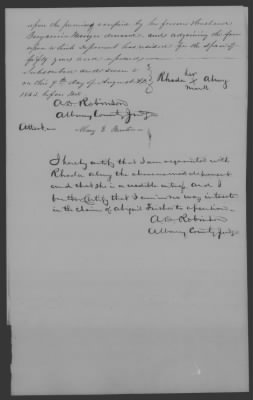 upon the premises occupied by her former Husband
Benjamin deceased and adjoining the farm
upon which deponent has resided for the space of
fifty years and upwards
Subscribed and sworn to
on this 9th day of August AD
1842 before me
her
Rhoda X
mark
A D Robinson
Albany County Judge
Attest
Mary E
I hereby certify that I am acquainted with
Rhoda the above named deponent
and that she is a credible witness, and I
further Certify that I am in no way interested
in the claim of Abigail
A D Robinson
Albany County Judge